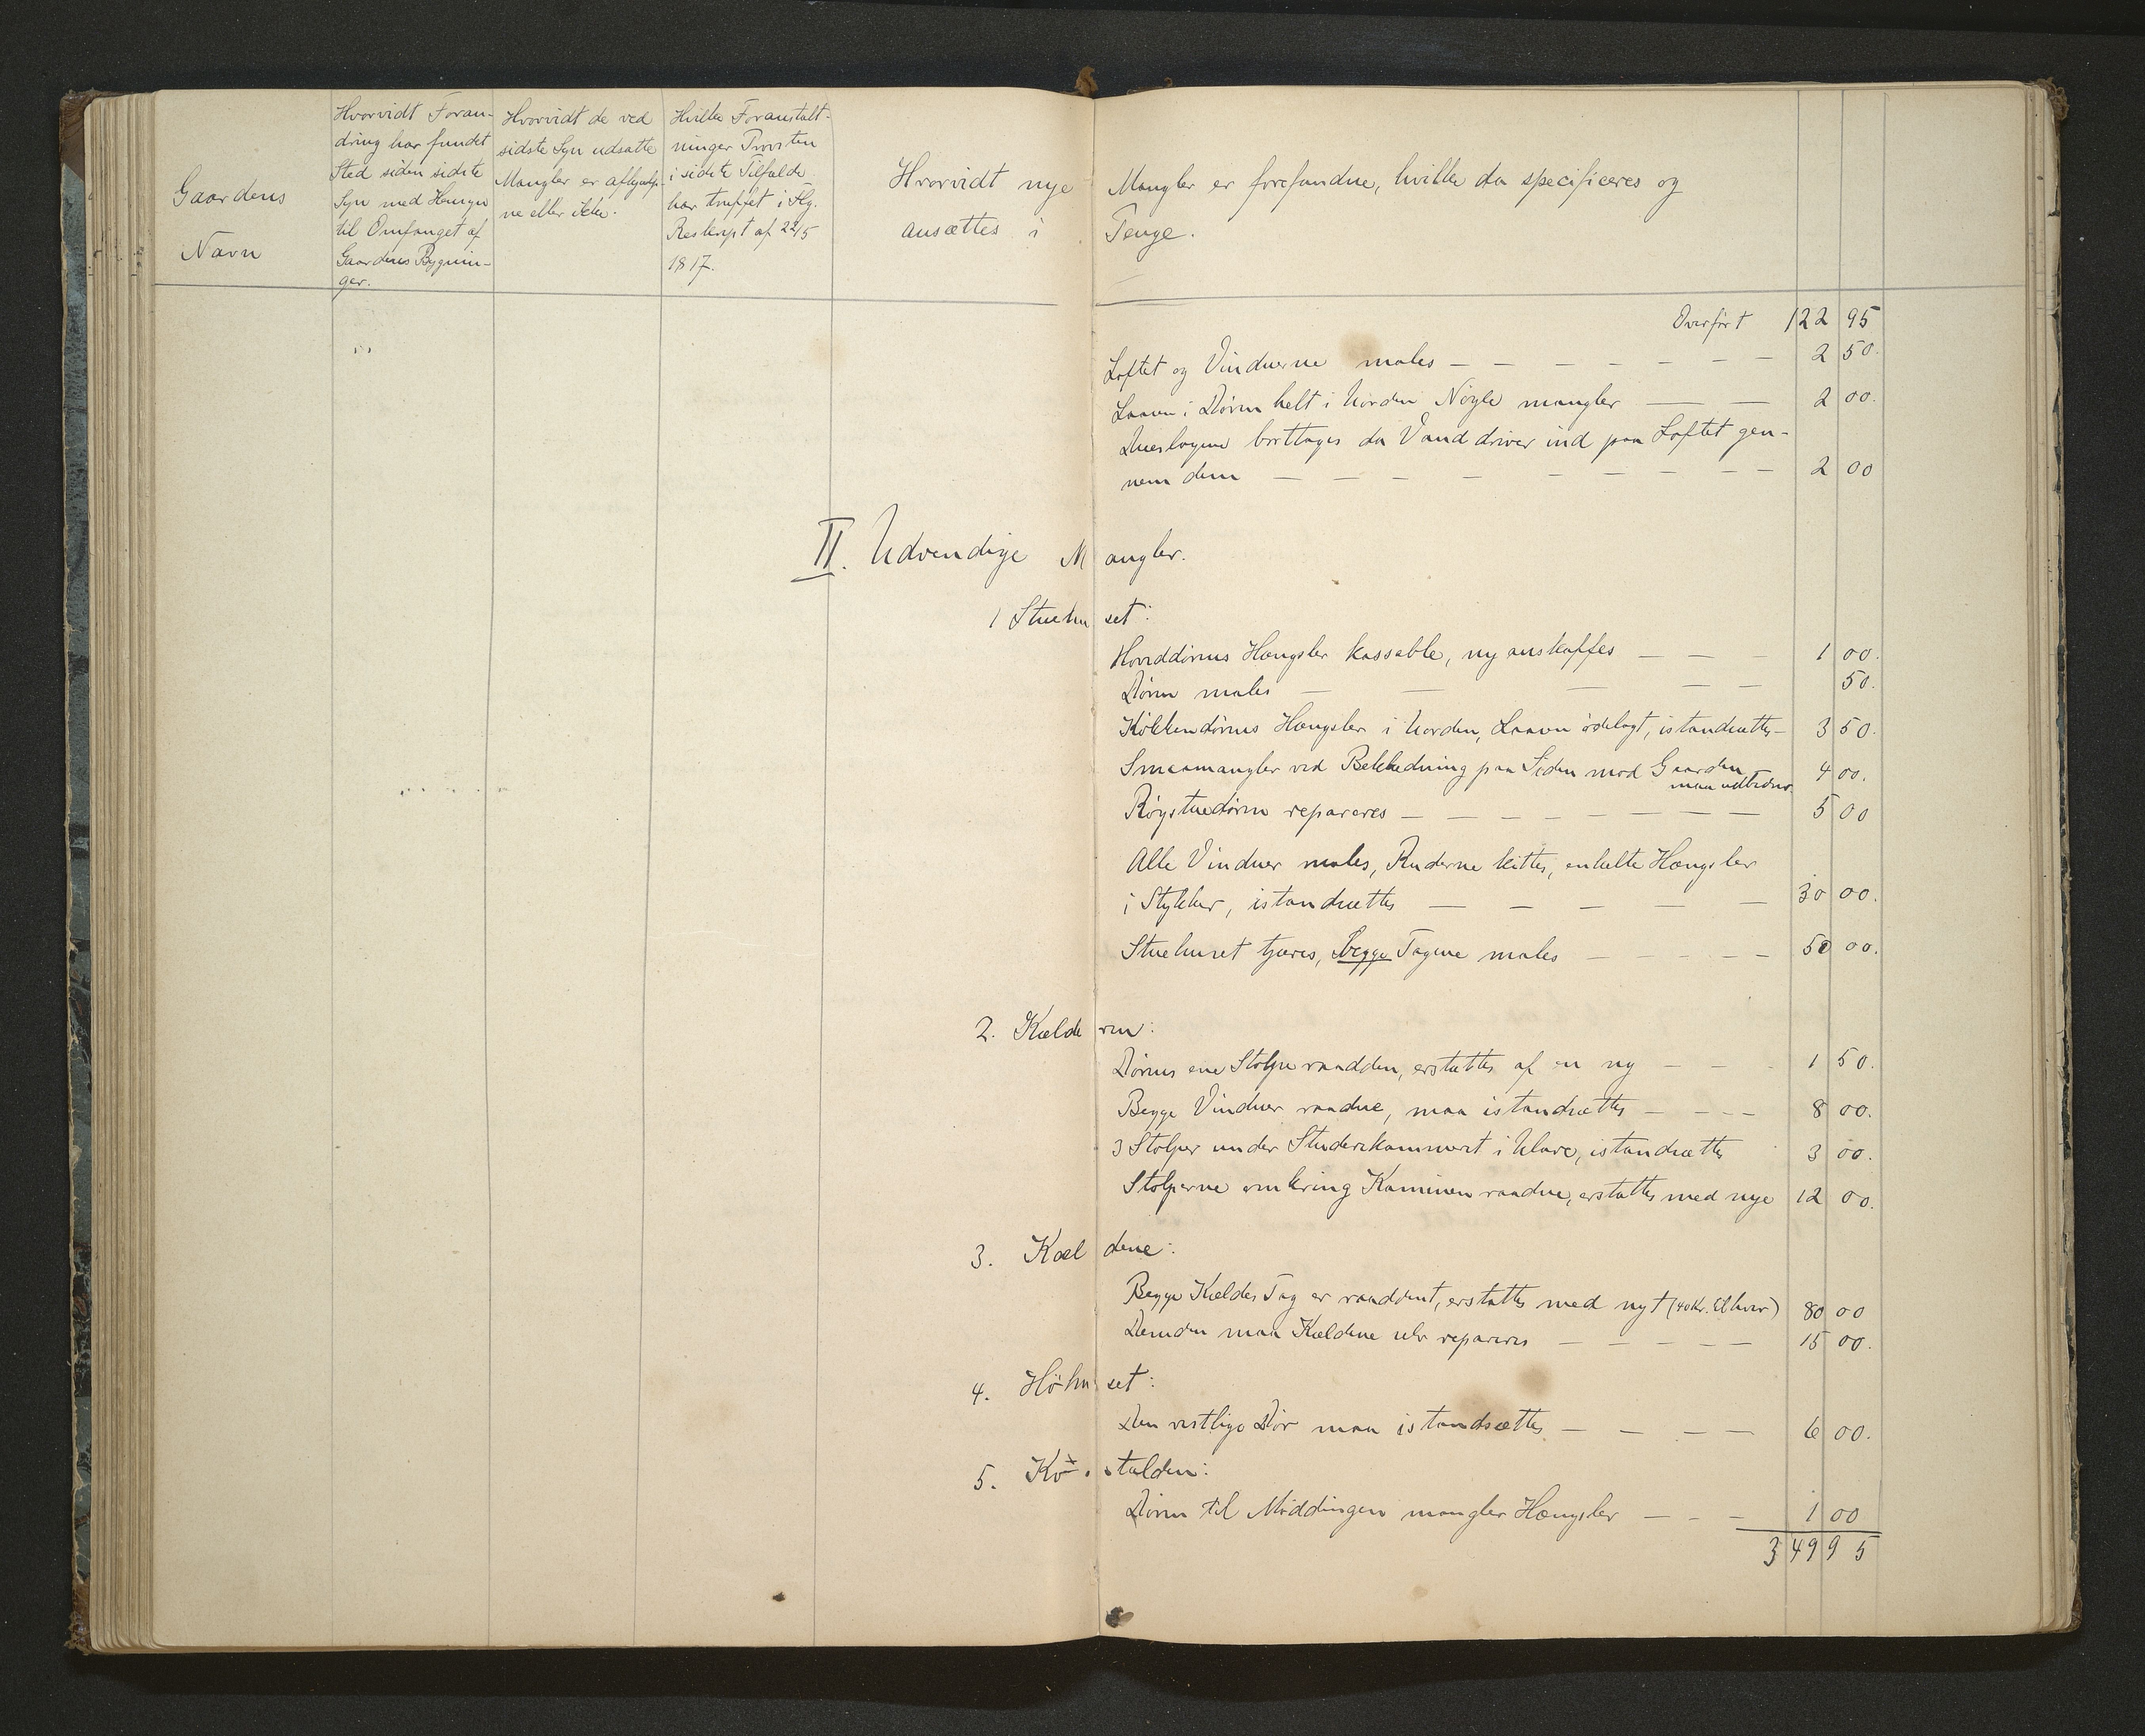 Gaardens
Navn
Hvorvidt Foran-
dring har fundet
Sted siden sidste
Syn med Hensyn
til Omfanget af
Gaardens Bygnin-
ger.
Hvorvidt de ved
sidste Syn udsatte
Mangler er afhjulp-
ne eller ikke.
Hvilke Foranstalt-
ninger Provsten
i sidste Tilfælde
har truffet i Flg.
Reskript af 22/5
1817.
Hvorvidt nye Mangler er forefundne, hvilke da specificeres og
ansættes i Penge.
Overført 122 95
Loftet og Vinduerne males — — — — — — 2 50.
Laasen i Døren helt i Uorden Nøgle mangler — — 2 00.
Dueslagene borttages da Vand driver ind paa Loftet gen-
nem dem — — — — — — — — 2 00
II. Udvendige Mangler.
1 Stuehuset:
Hoveddørens Hængsler kassable, ny anskaffes — — 1 00.
Døren males — — — — — 50.
Køkkendørens Hængsler i Uorden, Laasen ødelagt, istandsættes — 3 50.
Smaamangler ved Beklædning paa Siden mod Gaarden 4 00.
maa udbedres
Røgstuedøren repareres — — — — — — — — 5 00
Alle Vinduer males, Ruderne kittes, enkelte Hængsler
i Stykker, istandsættes — — — — — 30 00.
Stuehuset tjæres, begge Tagene males — — — — — 50 00.
2. Kælderen:
Dørens ene Stolpe raadden, erstattes af en ny — — 1 50.
Begge Vinduer raadne, maa istandsættes — — — — 8 00.
3 Stolper under Studerekammeret i Ulave, istandsættes 3 00.
Stolperne omkring Kaminen raadne, erstattes med nye 12 00.
3. Kældene:
Begge Kældes Tag er raaddent, erstattes med nyt (40 Kr. til hver) 80 00
Desuden maa Kældene selv repareres — — — — — 15 00.
4. Høhuset:
Den vestlige Dør maa istandsættes — — — — 6 00.
5. Kostalden:
Døren til Møddingen mangler Hængsler — — — 1 00
349 95